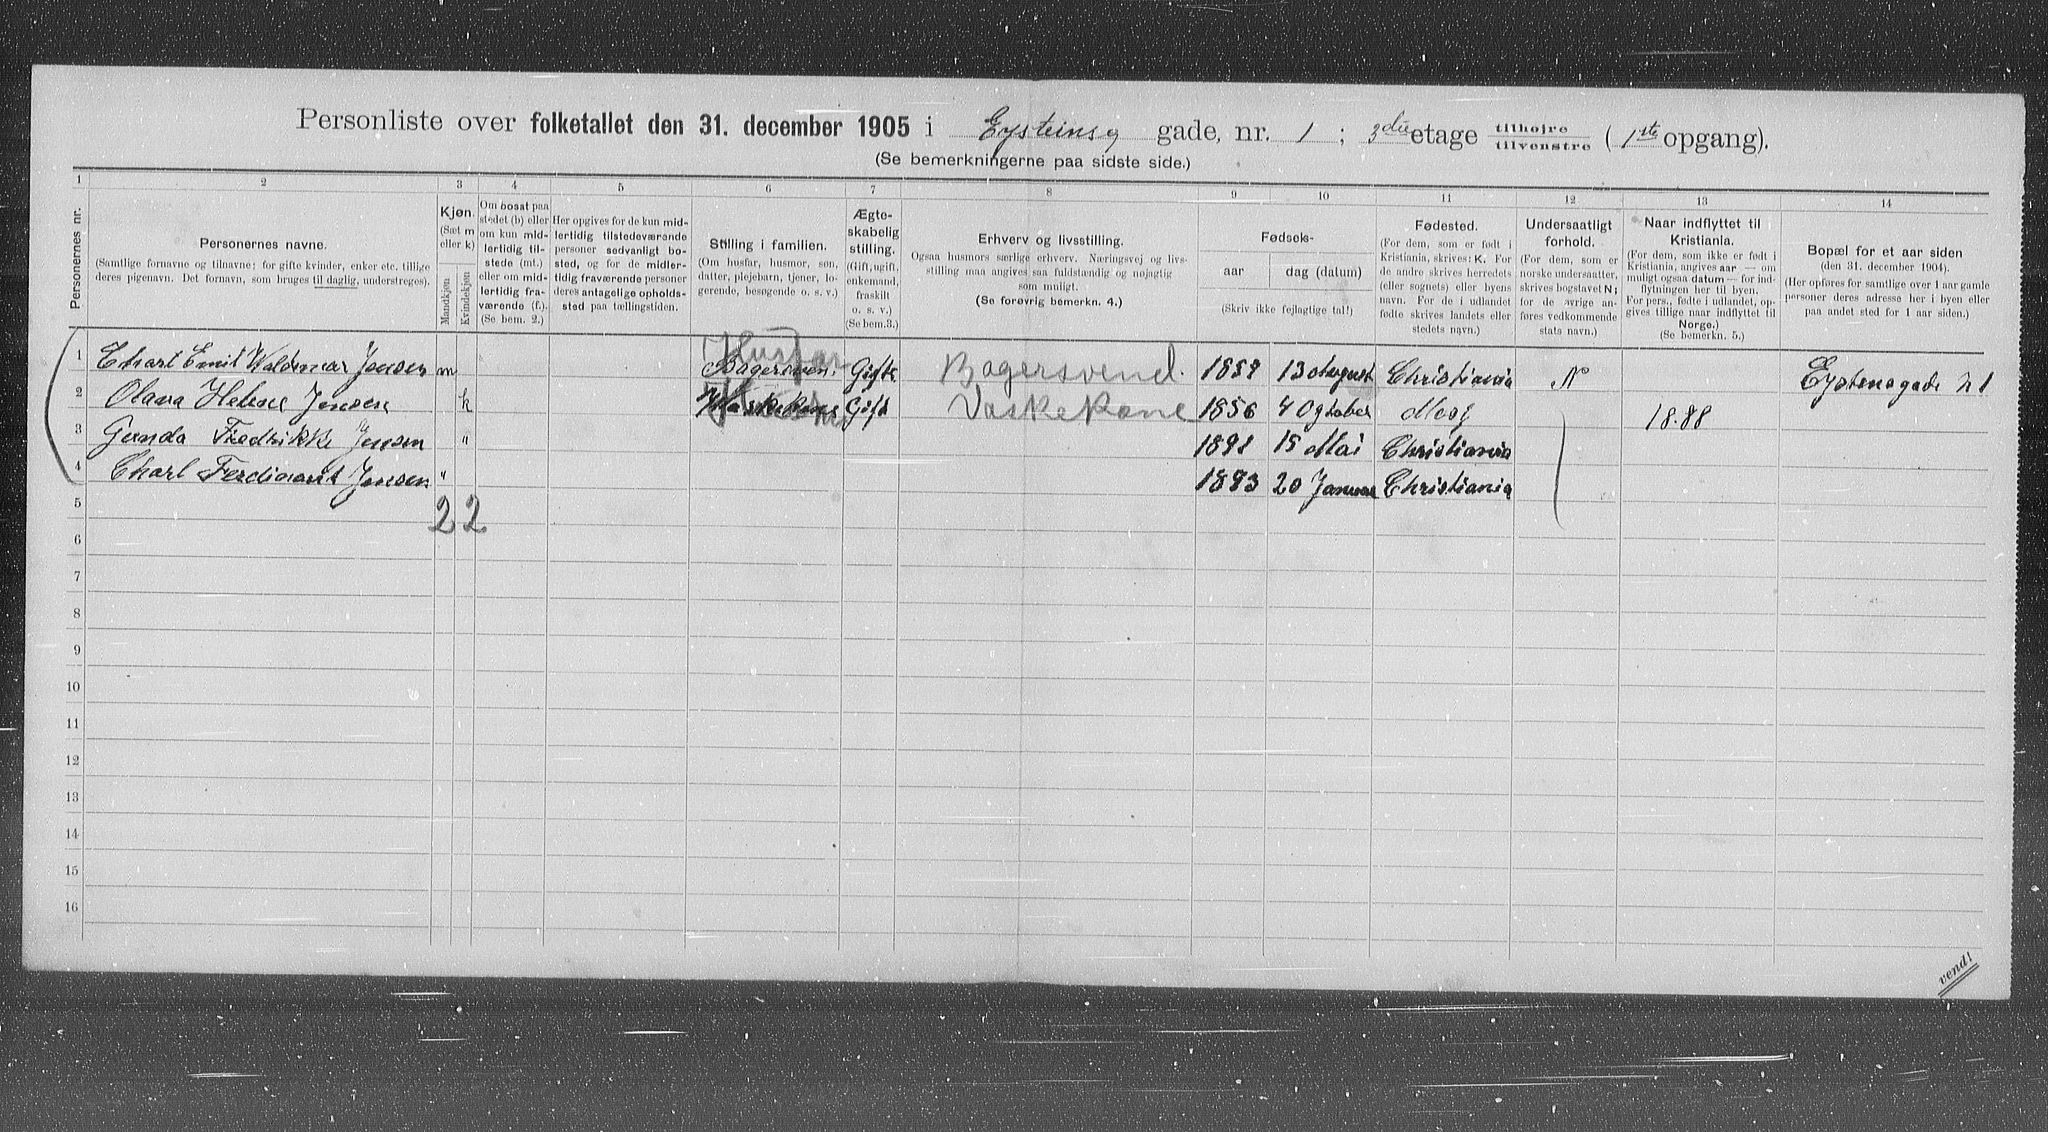 Personliste over folketallet den 31. december 1905 i Eysteinsg gade, nr. 1 ; 3die etage tilhøjre tilvenstre ( 1ste opgang).
(Se bemerkningerne paa sidste side.)
1 2 3 4 5 6 7 8 9 10 11 12 13 14
Personernes nr.
Personernes navne.
(Samtlige fornavne og tilnavne; for gifte kvinder, enker etc. tillige
deres pigenavn. Det fornavn, som bruges til daglig, understreges).
Kjøn.
(Sæt m
eller k)
Mandkjøn
Kvindekjøn
Om bosat paa
stedet (b) eller
om kun mid-
lertidig til-
stede (mt.)
eller om mid-
lertidig fra-
værende (f.).
(Se bem. 2.)
Her opgives for de kun mid-
lertidig tilstedeværende
personer sedvanligt bo-
sted, og for de midler-
tidig fraværende personer
deres antagelige opholds-
sted paa tællingstiden.
Stilling i familien.
(Om husfar, husmor, søn,
datter, plejebarn, tjener, lo-
gerende, besøgende o. s. v.)
Ægte-
skabelig
stilling.
(Gift, ugift,
enkemand,
fraskilt
o. s. v.)
(Se bem.3.)
Erhverv og livsstilling.
Ogsaa husmors særlige erhverv. Næringsvej og livs-
stilling maa angives saa fuldstændig og nøjagtig
som muligt.
(Se forøvrig bemerkn. 4.)
Fødsels-
aar dag (datum)
(Skriv ikke fejlagtige tal!)
Fødested.
(For dem, som er født i
Kristiania, skrives: K. For
de andre skrives herredets
(eller sognets) eller byens
navn. For de i udlandet
fødte skrives landets eller
stedets navn.)
Undersaatligt
forhold.
(For dem, som er
norske undersaatter,
skrives bogstavet N;
for de øvrige an-
føres vedkommende
stats navn.)
Naar indflyttet til
Kristiania.
(For dem, som ikke er født i
Kristiania, angives aar — om
muligt ogsaa datum — for ind-
flytningen her til byen.
For pers., fødte i udlandet, op-
gives tillige naar indflyttet til
Norge.)
(Se bemerkn. 5.)
Bopæl for et aar siden
(den 31. december 1904).
(Her opføres for samtlige over 1 aar gamle
personer deres adresse her i byen eller
paa andet sted for 1 aar siden.)
1 Chart Emil Waldemar Jensen m Husfar Bagersven. Gift Bagersvend. 13 August Christiania N Eystensgade N 1
2 Olava Helene Jensen k Vaskekone Gift Vaskekone 1856 4 Ogtober 18.88
3 Gunda Fredrikke Jensen " 1891 15 Mai Christiania
4 Charl Ferdinant Jensen " 1893 20 Januar Christiania
5 2 2
6
7
8
9
10
11
12
13
14
15
16
vend!